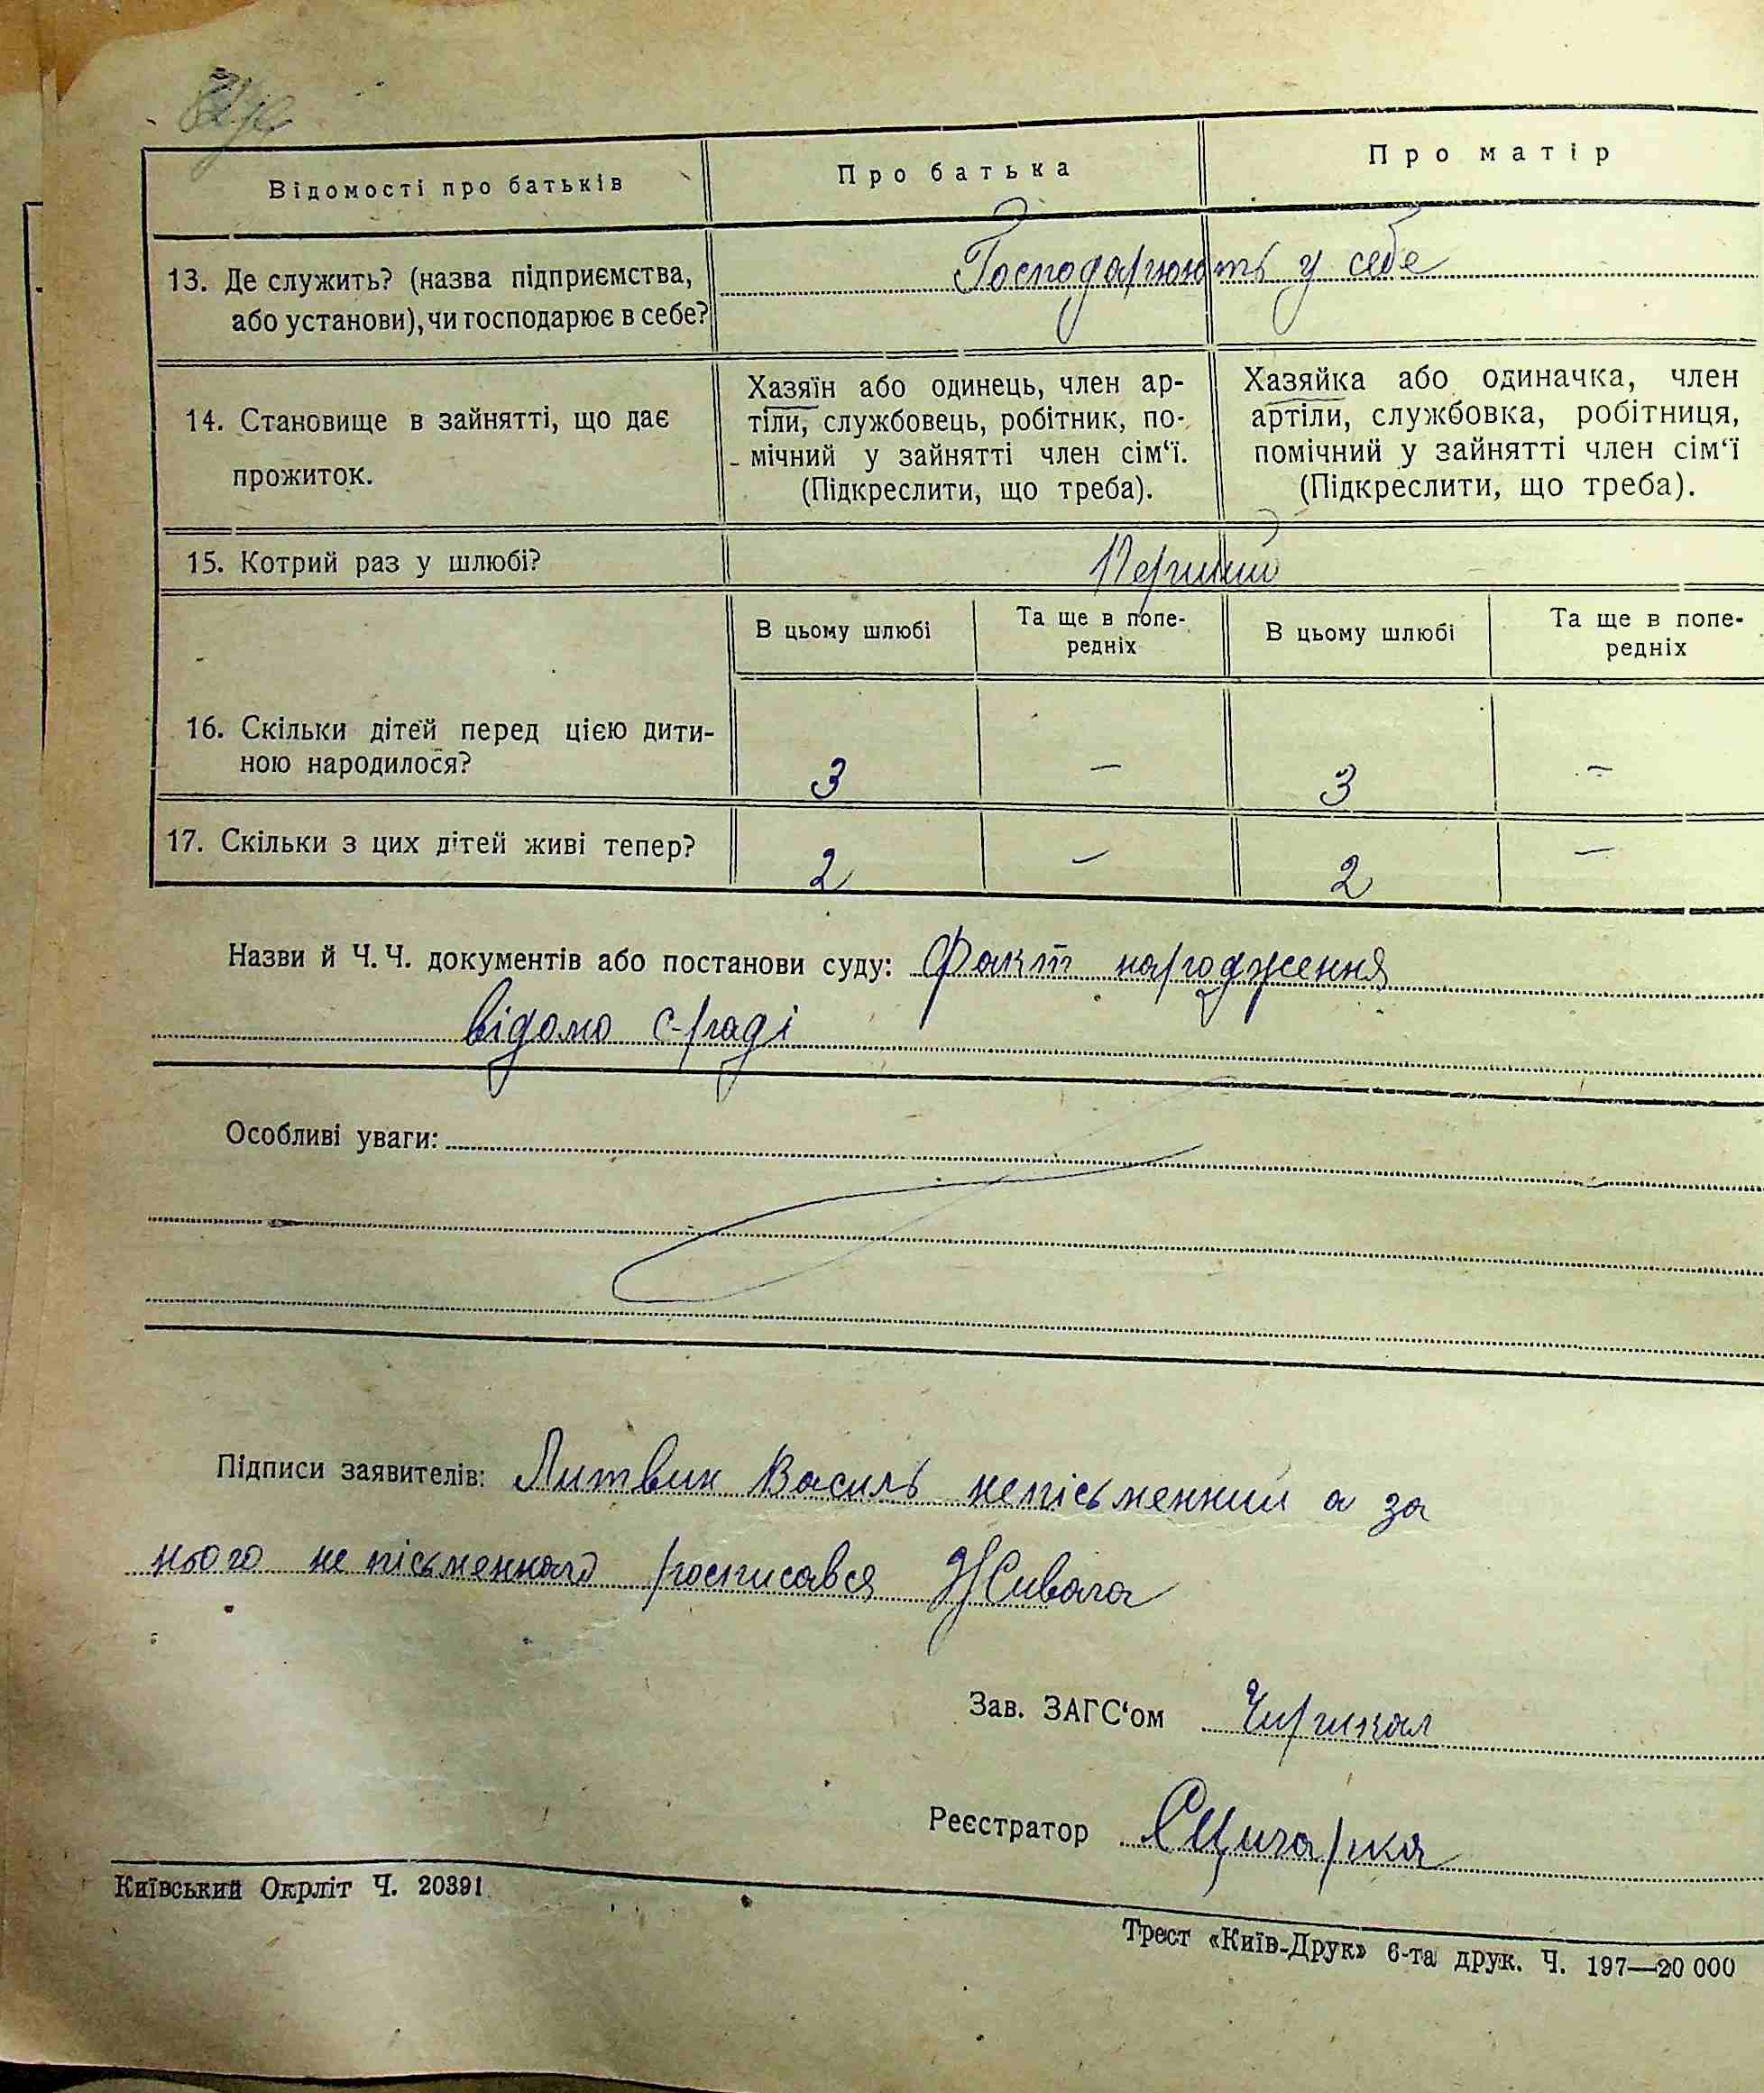 Відомості про батьків Про батька Про матір
13. Де служить? (назва підприємства, або установи), чи господарює в себе? Господарюють у себе
14. Становище в зайнятті, що дає прожиток.
Хазяїн або одинець, член ар-
тіли, службовець, робітник, по-
мічний у зайнятті член сім‘ї.
(Підкреслити, що треба).
Хазяйка або одиначка, член
артіли, службовка, робітниця,
помічний у зайнятті член сім‘ї
(Підкреслити, що треба).
15. Котрий раз у шлюбі? Перший
В цьому шлюбі Та ще в попе-редніх В цьому шлюбі Та ще в попе-редніх
16. Скільки дітей перед цією дити-
ною народилося? 3 — 3 —
17. Скільки з цих дітей живі тепер? 2 — 2 —
Назви й Ч. Ч. документів або постанови суду: Факт народження
відомо с-раді
Особливі уваги:
Підписи заявителів: Литвин Василь непісьменний а за
нього не пісьменного росписався
Зав. ЗАГС‘ом
Реєстратор
Київський Окрліт Ч. 20391
Трест «Київ-Друк» 6-та друк. Ч. 197—20 000